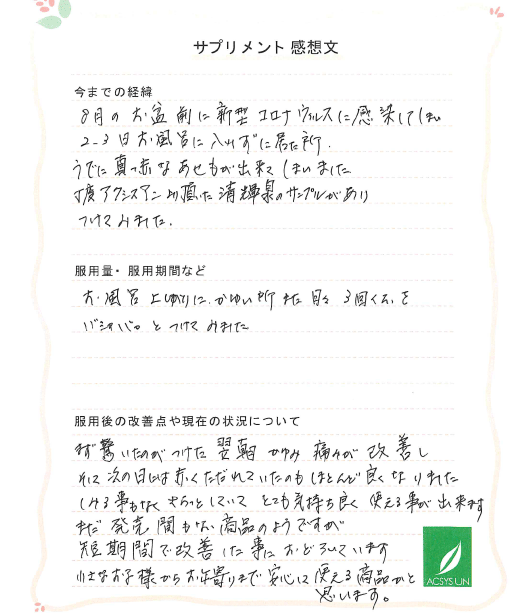 サプリメント 感想文
今までの経緯
8月のお盆前に新型コロナウィルスに感染してしまい
2-3日お風呂に入れずに居た所、
うでに真っ赤なあせもが出来てしまいました
丁度アクシスアンより頂いた清輝泉のサンプルがあり
つけてみました。
服用量・服用期間など
お風呂上がりに、かゆい所また日々3回くらいを
バシャバシャとつけてみました
服用後の改善点や現在の状況について
まず驚いたのがつけた翌朝かゆみ痛みが改善し
そして次の日には赤くただれていたのもほとんど良くなりました
しみる事もなくさらっとしていてとても気持ち良く使える事が出来ます
まだ発売間もない商品のようですが
短期間で改善した事におどろいています
小さなお子様からお年寄りまで安心に使える商品かと
思います。
ACSYS UN